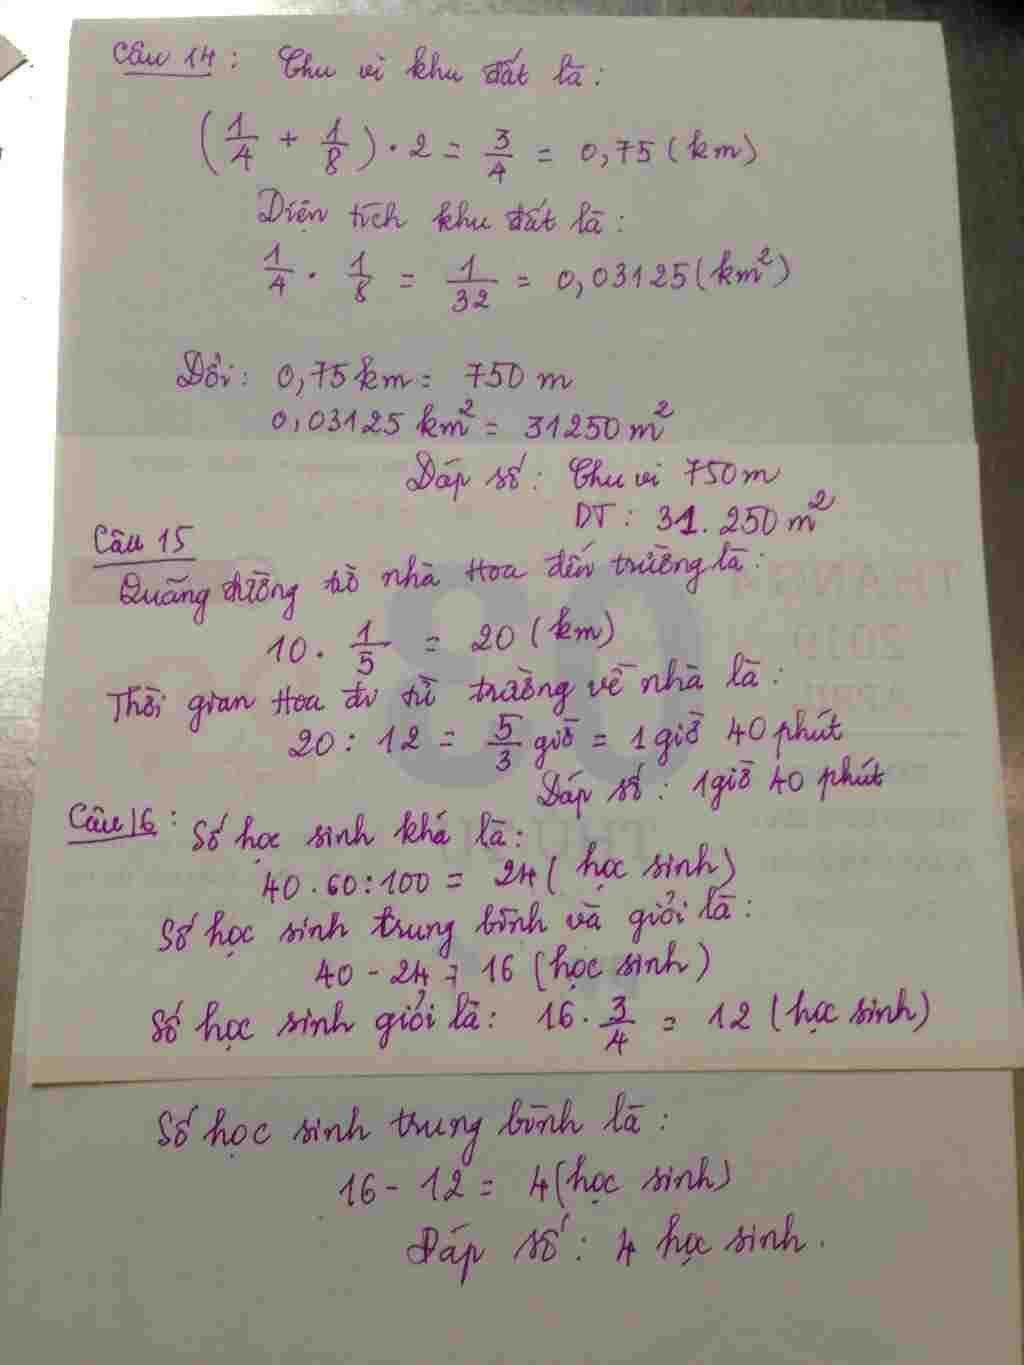 Câu 14 : Chu vi khu đất là :
(1/4 + 1/8) . 2 = 3/4 = 0,75 (km)
Diện tích khu đất là :
1/4 . 1/8 = 1/32 = 0,03125 (km²)
Đổi : 0,75 km = 750 m
0,03125 km² = 31250 m²
Đáp số : Chu vi 750 m
DT : 31.250 m²
Câu 15
Quãng đường từ nhà Hoa đến trường là :
10 . 1/5 = 20 (km)
Thời gian Hoa đi từ trường về nhà là :
20 : 12 = 5/3 giờ = 1 giờ 40 phút
Đáp số : 1 giờ 40 phút
Câu 16 : Số học sinh khá là :
40 . 60 : 100 = 24 ( học sinh)
Số học sinh trung bình và giỏi là :
40 - 24 = 16 (học sinh)
Số học sinh giỏi là : 16 . 3/4 = 12 (học sinh)
Số học sinh trung bình là :
16 - 12 = 4 (học sinh)
Đáp số : 4 học sinh .
THÁNG 4
2019
APRIL
08
THỨ HAI